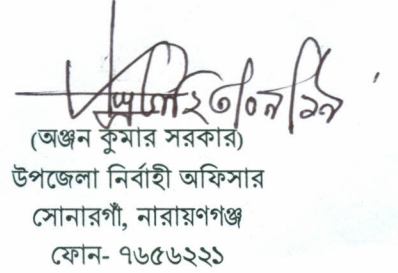 (অঞ্জন কুমার সরকার)
উপজেলা নির্বাহী অফিসার
সোনারগাঁ, নারায়ণগঞ্জ
ফোন- ৭৬৫৬২২১